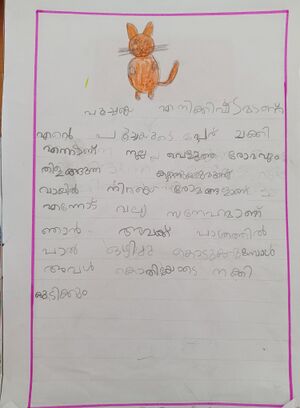 പൂച്ചയെ എനിക്കിഷ്ടമാണ്
എന്റെ പൂച്ചയുടെ പേര് ചക്കി
എന്നാണ് നല്ല വെളുത്ത രോമവും
തിളങ്ങുന്ന കണ്ണുകളുമാണ്
വാലിൽ നിറയെ രോമങ്ങളുമാണ്
എന്നോട് വല്യ സ്നേഹമാണ്
ഞാൻ അവൾക്ക് പാത്രത്തിൽ
പാൽ ഒഴിച്ചു കൊടുക്കുമ്പോൾ
അവൾ കൊതിയോടെ നക്കി
കുടിക്കും